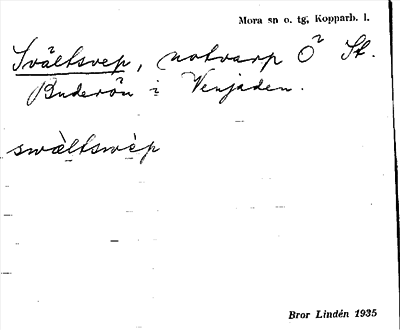 Mora sn o. tg, Kopparb. l.
Svältsvep, notvarp Ö St.
Buderön i Venjaden.
swàltswèp
Bror Lindén 1935